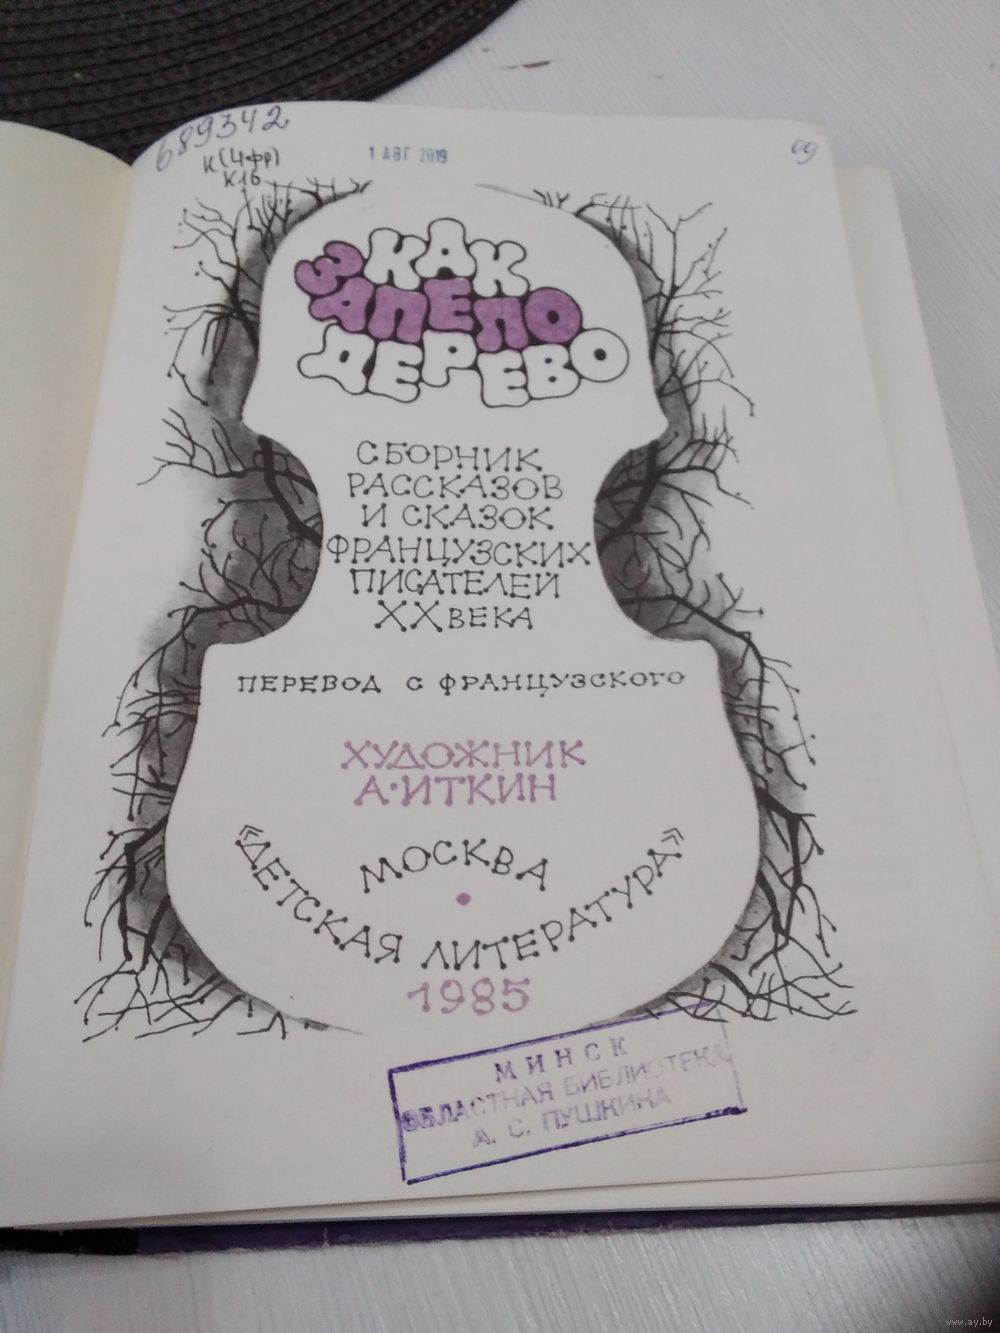 689342
К(4фр)
К16
1 АВГ 2019
09
КАК
ЗАПЕЛО
ДЕРЕВО
СБОРНИК
РАССКАЗОВ
И СКАЗОК
ФРАНЦУЗСКИХ
ПИСАТЕЛЕЙ
XX ВЕКА
ПЕРЕВОД С ФРАНЦУЗСКОГО
ХУДОЖНИК
А·ИТКИН
МОСКВА
«ДЕТСКАЯ ЛИТЕРАТУРА»
1985
МИНСК
ОБЛАСТНАЯ БИБЛИОТЕКА
А. С. ПУШКИНА
www.ay.by